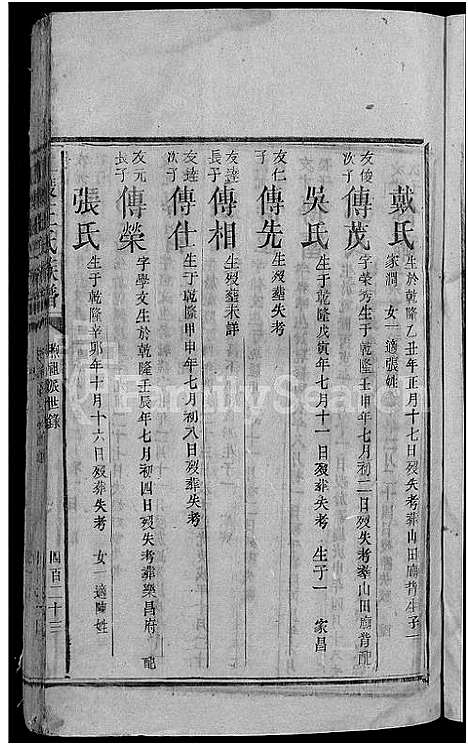 戴氏 生於乾隆乙丑年正月十七日歿失考葬山田廟背生子一
家潤 女一適張姓
友俊次子 傳茂 字榮秀生于乾隆壬申年七月初二日歿失考葬山田廟背配
吳氏 生于乾隆戊寅年七月十一日歿葬失考 生子一 家昌
友仁子 傳先 生歿葬失考
友逵長子 傳相 生歿葬未詳
友逵次子 傳仕 生于乾隆甲申年七月初八日歿葬失考
友元長子 傳榮 字學文生於乾隆壬辰年七月初四日歿失考葬樂昌府 配
張氏 生于乾隆辛卯年十月十六日歿葬失考 女一適陳姓
氏族譜
派世錄
四百二十三
FamilySearch